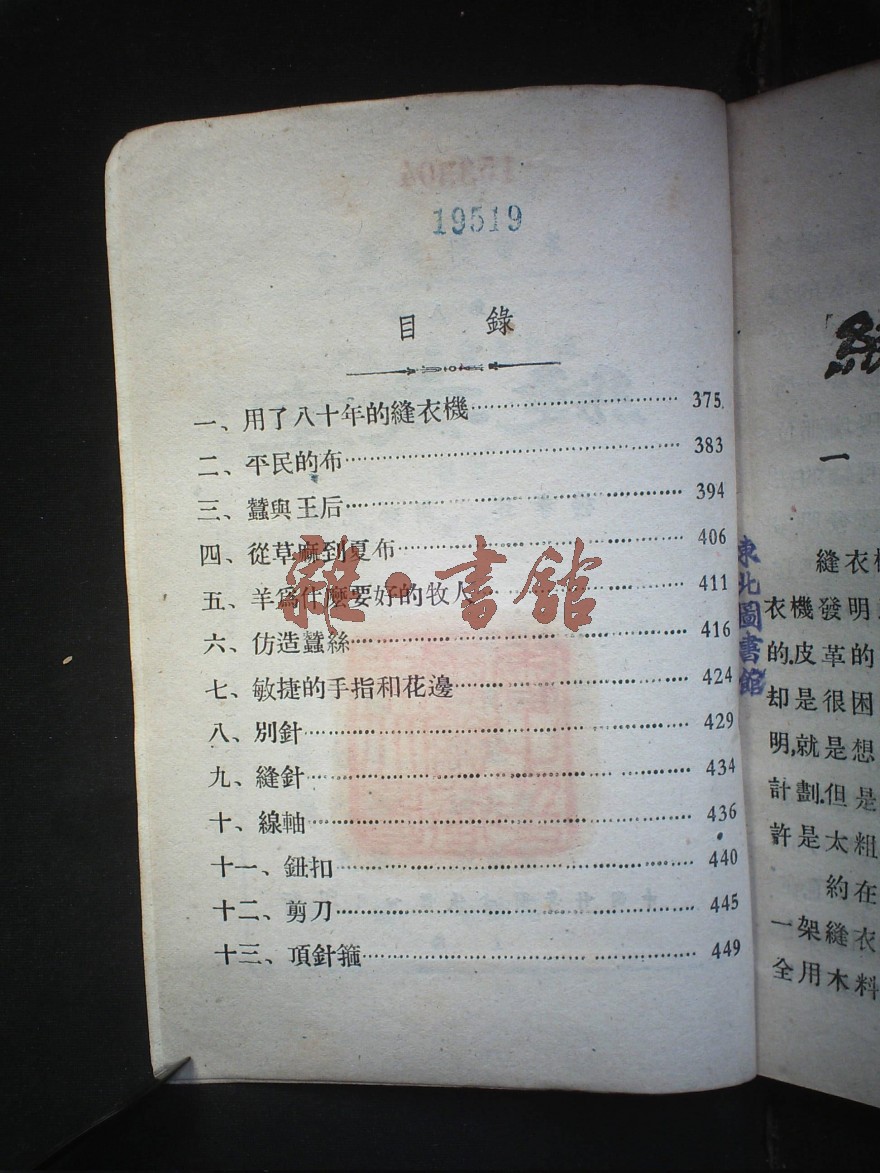 19519
目 錄
一、用了八十年的縫衣機 375
二、平民的布 383
三、蠶與王后 394
四、從草麻到夏布 406
五、羊爲什麼要好的牧人 411
六、仿造蠶絲 416
七、敏捷的手指和花邊 424
八、別針 429
九、縫針 434
十、線軸 436
十一、鈕扣 440
十二、剪刀 445
十三、頂針箍 449
雜·書館
東北圖書館
一
縫衣
衣機發明
的.皮革的
却是很困
明,就是想
計劃.但是
許是太粗
約在
一架縫衣
全用木料